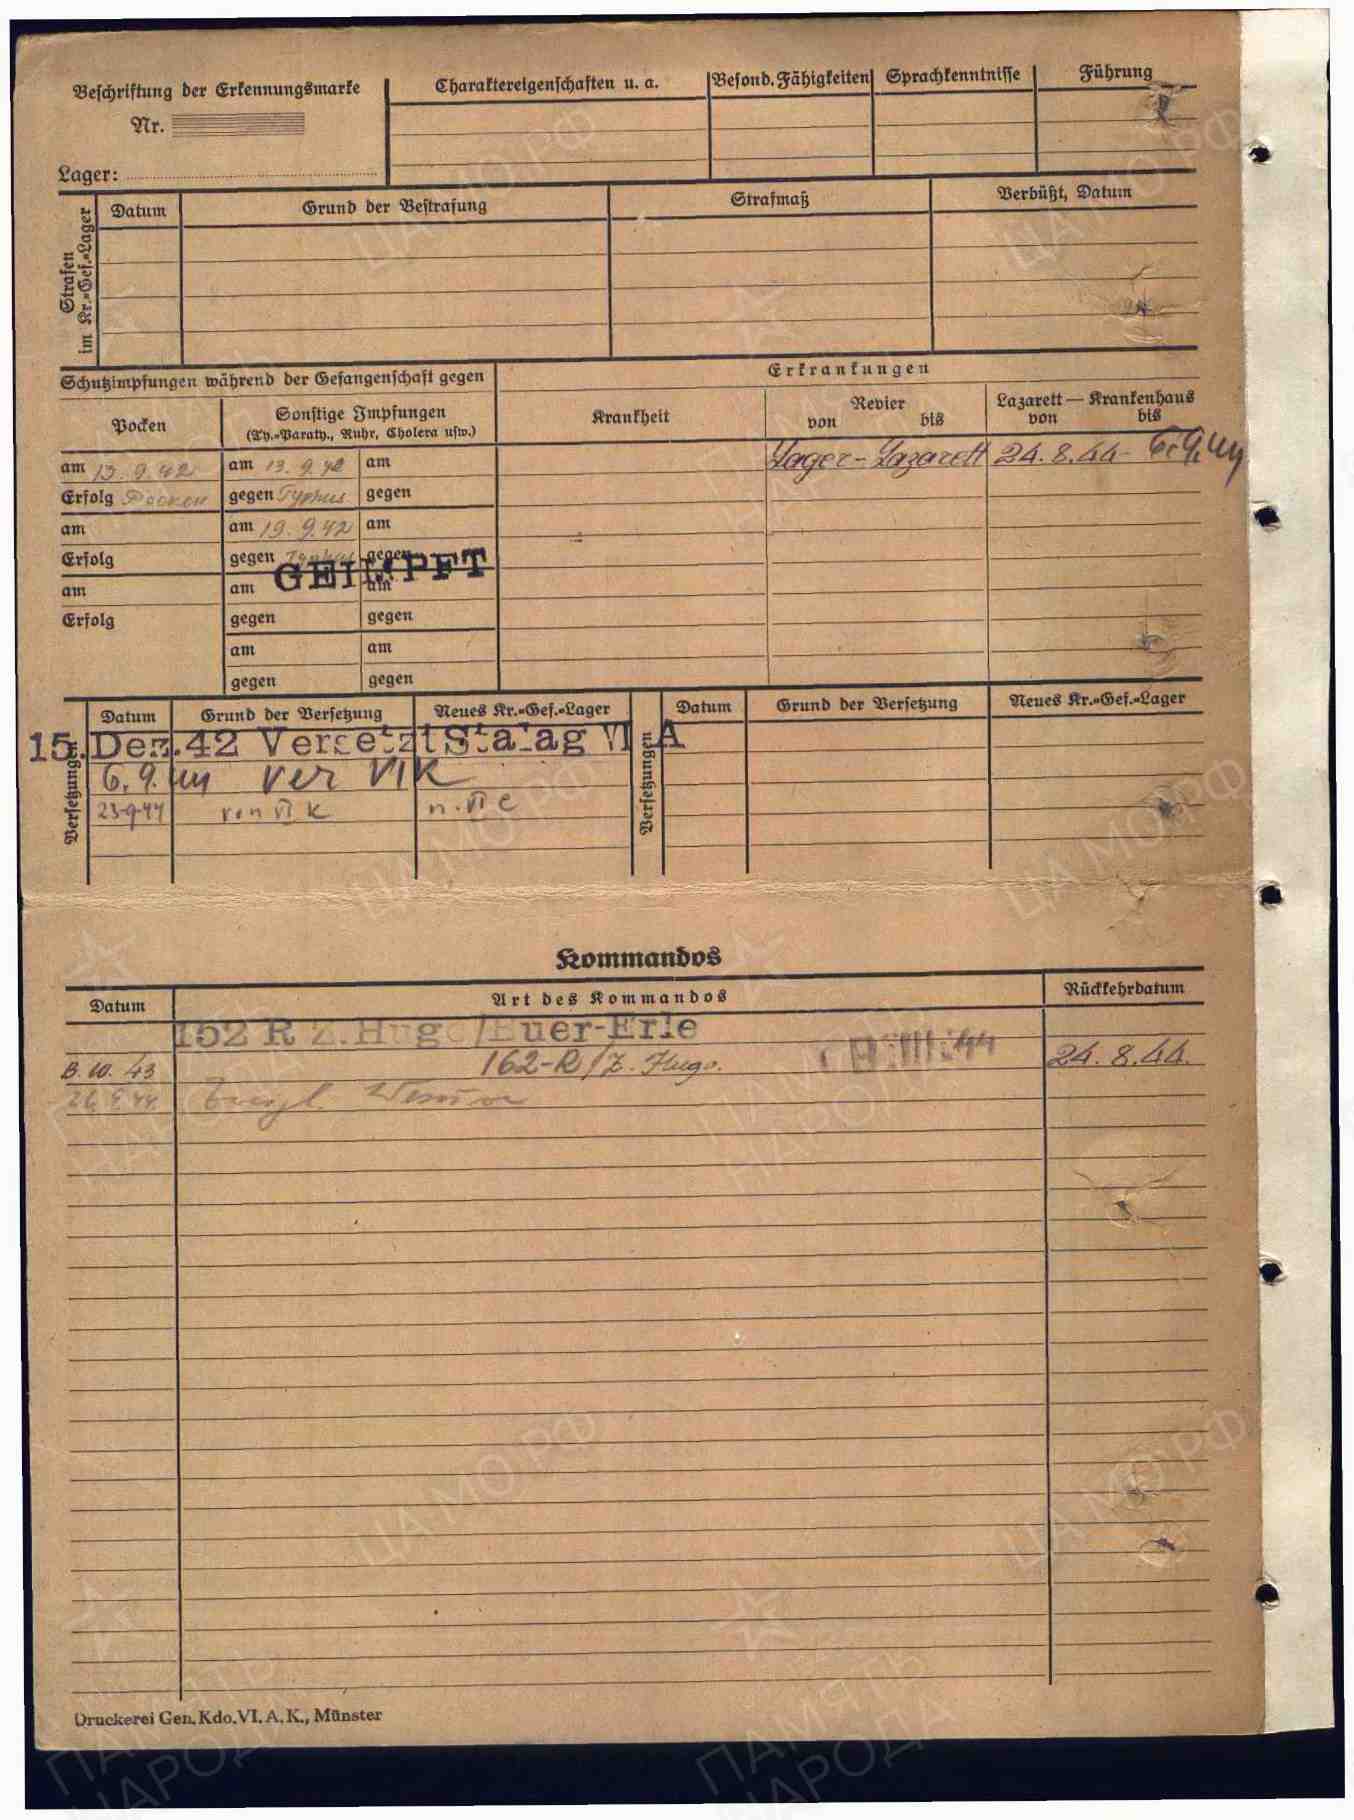 Beschriftung der Erkennungsmarke
Nr.
Lager:
Charaktereigenschaften u. a.
Besond. Fähigkeiten
Sprachkenntnisse
Führung
Strafen im Kr.=Gef.=Lager
Datum
Grund der Bestrafung
Strafmaß
Verbüßt, Datum
Schutzimpfungen während der Gefangenschaft gegen
Erkrankungen
Pocken
Sonstige Impfungen
(Ty.=Paraty., Ruhr, Cholera usw.)
Krankheit
Revier
von bis
Lazarett — Krankenhaus
von bis
am 13.9.42 am 13.9.42 am
Lager-Lazarett 24.8.44- 6.9.44
Erfolg Pocken gegen Typhus gegen
am am 19.9.42 am
Erfolg gegen Typhus gegen
GEIMPFT
am am am
Erfolg gegen gegen
am am
gegen gegen
Versetzungen
Datum Grund der Versetzung Neues Kr.=Gef.=Lager
Versetzungen
Datum Grund der Versetzung Neues Kr.=Gef.=Lager
15. Dez. 42 Versetzt Stalag VI A
6.9.44 ver VI K
23.9.44 von VI K n. VI C
Kommandos
Datum Art des Kommandos Rückkehrdatum
152 R Z. Hugo/Buer-Erle
3.10.43 162-R/Z. Hugo. 24.8.44.
Druckerei Gen. Kdo. VI. A. K., Münster
ЦА МО РФ
ПАМЯТЬ НАРОДА